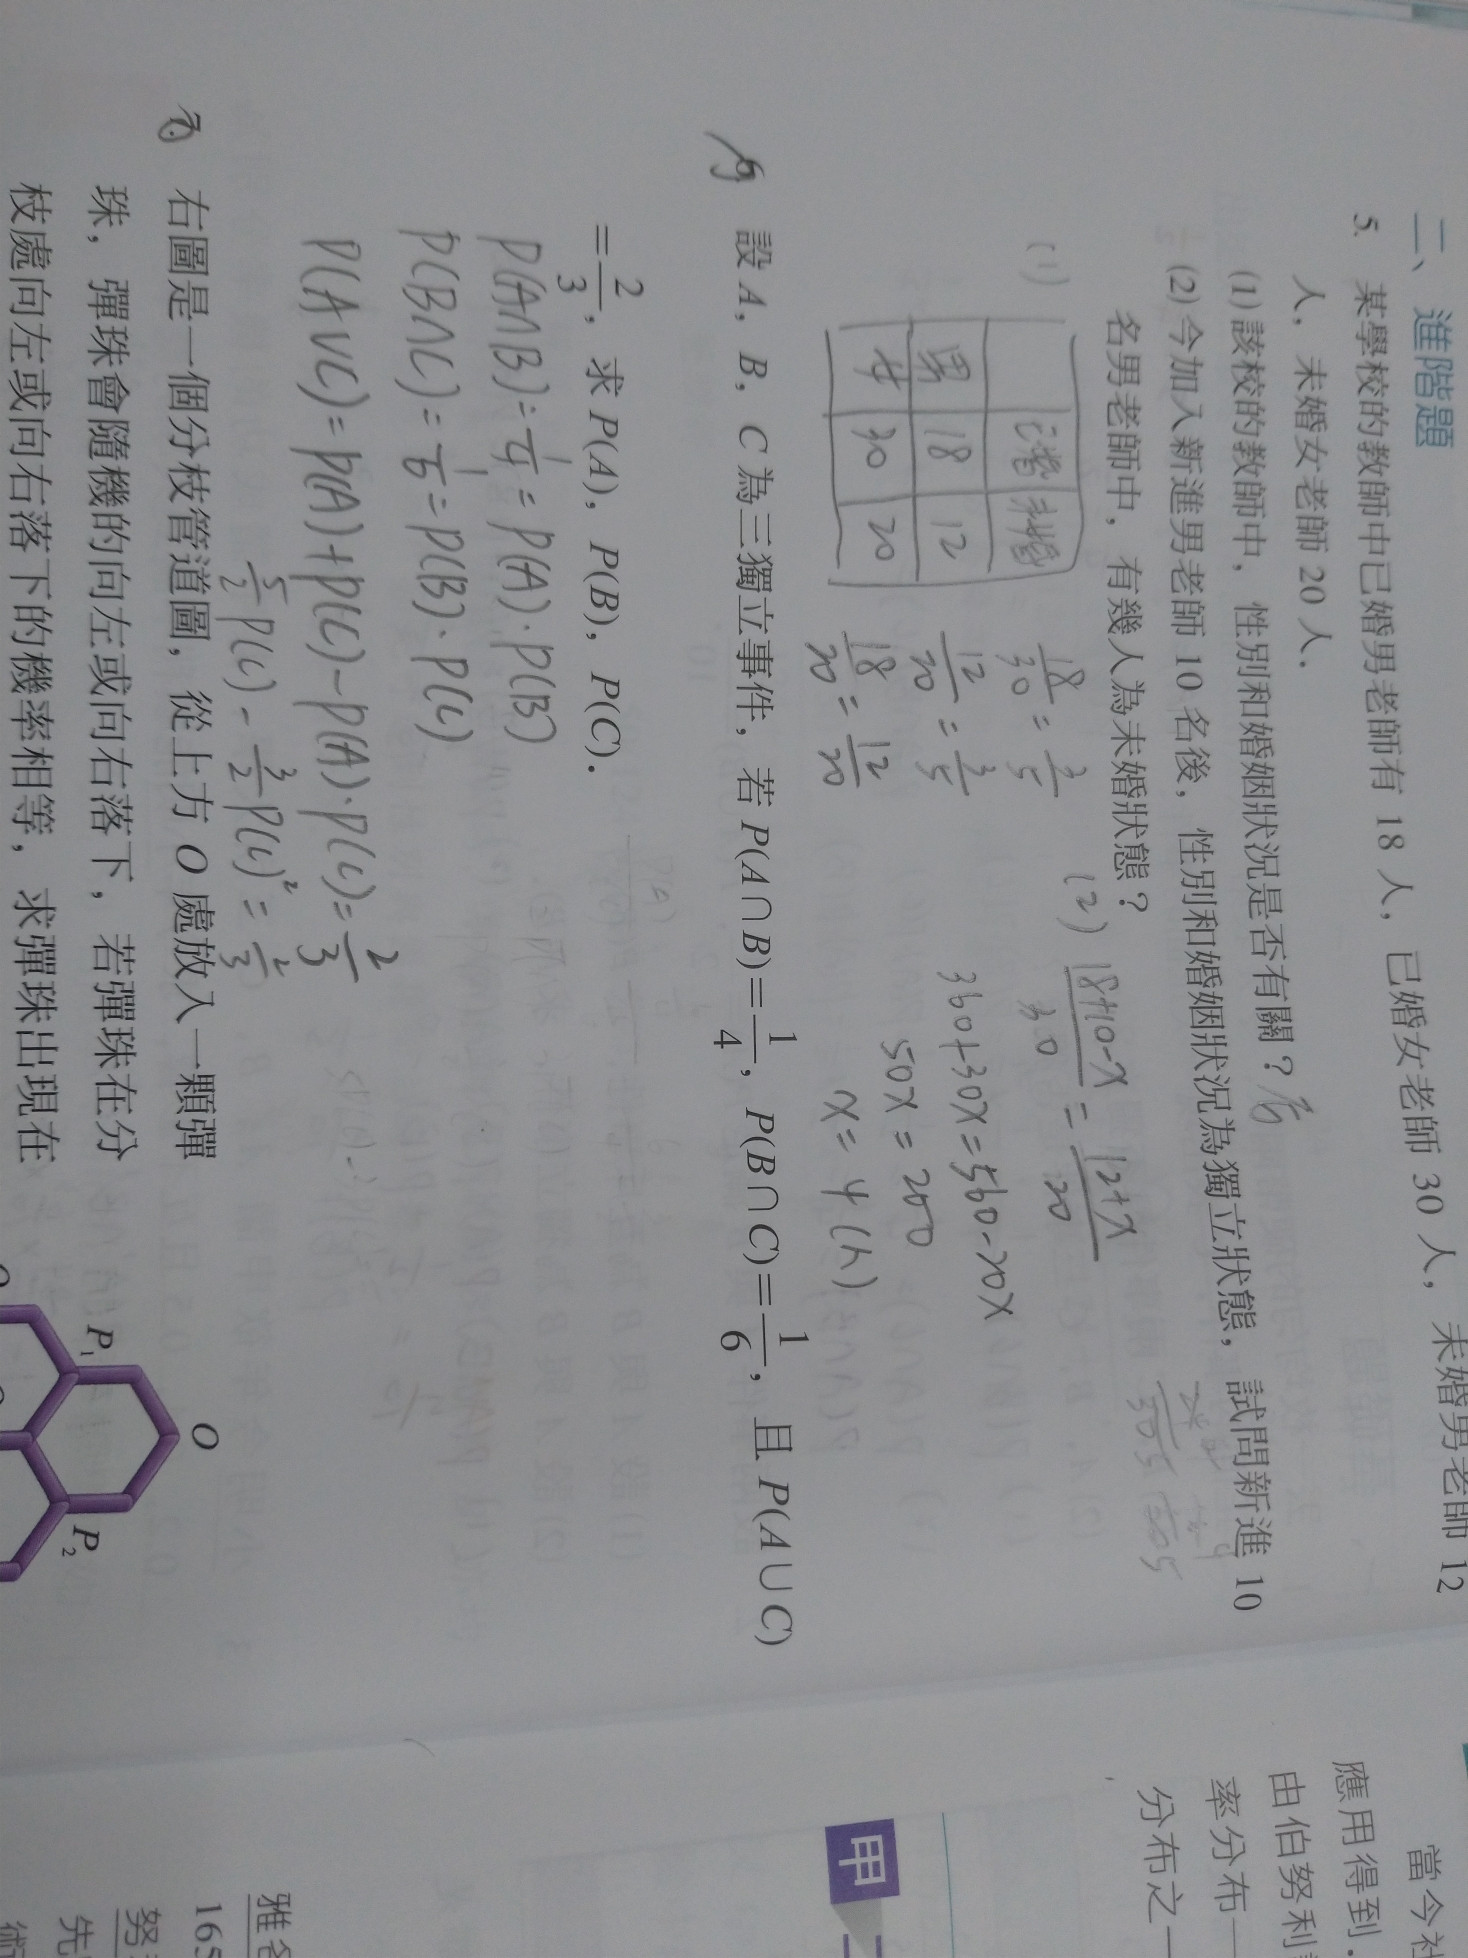 二、進階題
5. 某學校的教師中已婚男老師有 18 人，已婚女老師 30 人，未婚男老師 12
人，未婚女老師 20 人．
(1) 該校的教師中，性別和婚姻狀況是否有關？
(2) 今加入新進男老師 10 名後，性別和婚姻狀況為獨立狀態，試問新進 10
名男老師中，有幾人為未婚狀態？
(1)
已婚 未婚
男 18 12
女 30 20
18/30 = 3/5
12/20 = 3/5
18/30 = 12/20
(2) (18+10-x)/30 = (12+x)/20
360+30x=560-20x
50x=200
x=4(人)
6. 設 A，B，C 為三獨立事件，若 P(A∩B)=1/4，P(B∩C)=1/6，且 P(A∪C)
=2/3，求 P(A)，P(B)，P(C)．
P(A∩B)=1/4=P(A)·P(B)
P(B∩C)=1/6=P(B)·P(C)
P(A∪C)=P(A)+P(C)-P(A)·P(C)=2/3
5/2 P(C) - 3/2 P(C)² = 2/3
7. 右圖是一個分枝管道圖，從上方 O 處放入一顆彈
珠，彈珠會隨機的向左或向右落下，若彈珠在分
枝處向左或向右落下的機率相等，求彈珠出現在
O
P₁
P₂
當今社
應用得到．
由伯努利
率分布
分布之一
甲
雅各
165
努
先
術